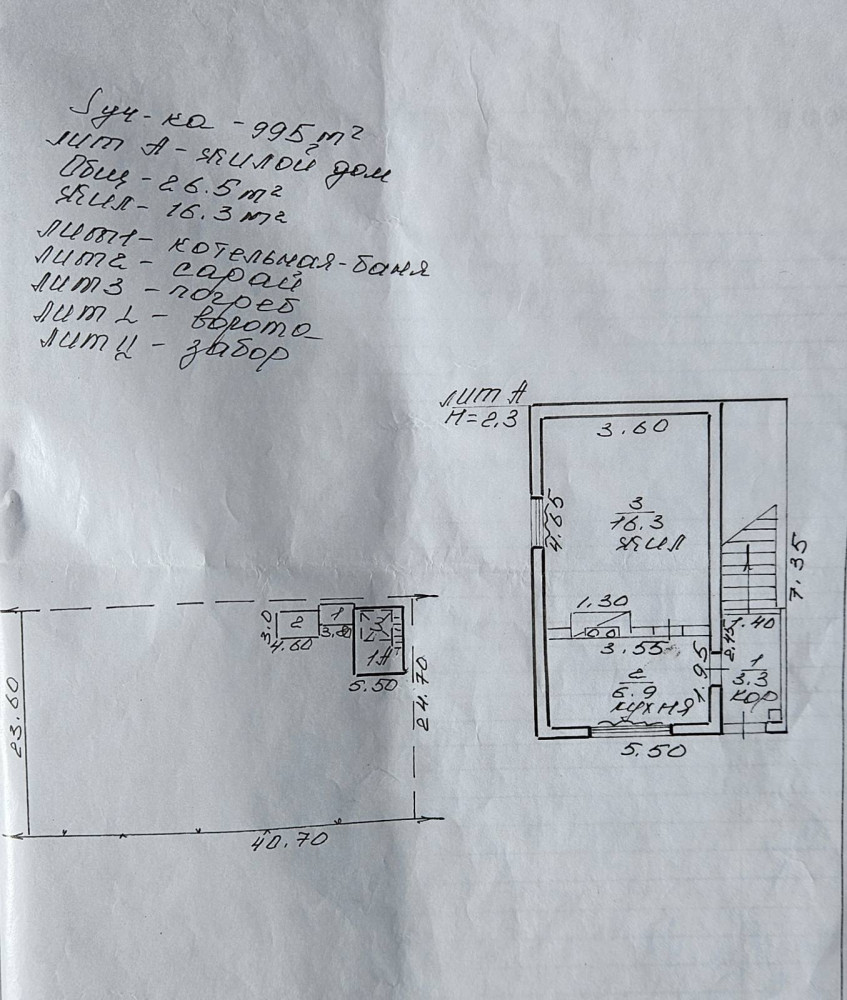 Sуч-ка - 995 m²
лит А - жилой дом
Общ - 26.5 m²
Жил - 16.3 m²
лит1 - котельная-баня
лит2 - сарай
лит3 - погреб
лит 1 - ворота
лит II - забор
лит А
H=2.3
3.60
4.65
3
16.3
жил
7.35
1.30
3.55
1.95
2.45
1.40
2
6.9
кухня
1
3.3
кор
5.50
3.0
2
4.60
1
3
1А
5.50
23.60
24.70
40.70